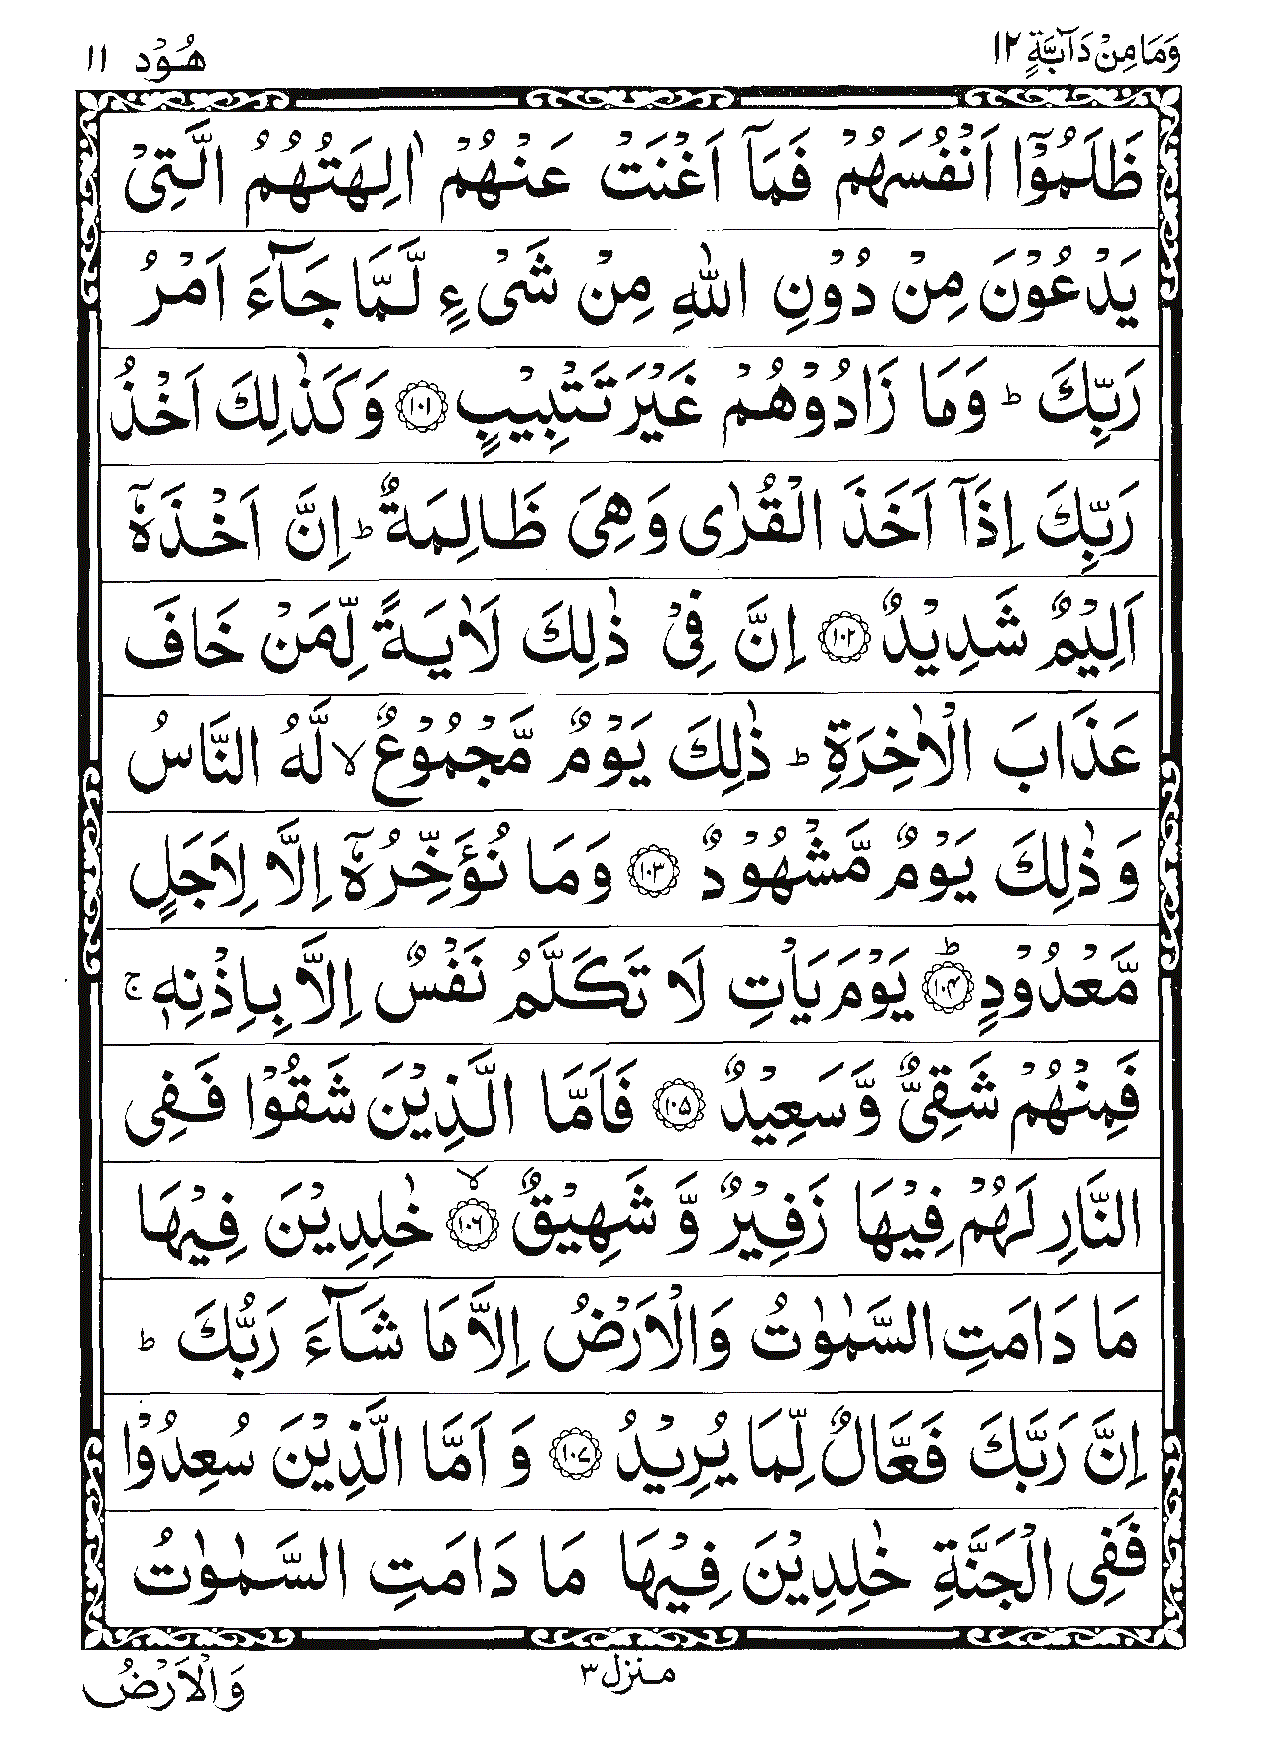 وَمَا مِنْ دَآبَّةٍ ۱۲
هُوْد ۱۱
ظَلَمُوْۤا اَنْفُسَهُمْ فَمَاۤ اَغْنَتْ عَنْهُمْ اٰلِهَتُهُمُ الَّتِیْ
يَدْعُوْنَ مِنْ دُوْنِ اللّٰهِ مِنْ شَیْءٍ لَّمَّا جَآءَ اَمْرُ
رَبِّكَ ؕ وَمَا زَادُوْهُمْ غَيْرَ تَتْبِيْبٍ ﴿۱۰۱﴾ وَكَذٰلِكَ اَخْذُ
رَبِّكَ اِذَاۤ اَخَذَ الْقُرٰى وَهِیَ ظَالِمَةٌ ؕ اِنَّ اَخْذَهٗۤ
اَلِيْمٌ شَدِيْدٌ ﴿۱۰۲﴾ اِنَّ فِیْ ذٰلِكَ لَاٰيَةً لِّمَنْ خَافَ
عَذَابَ الْاٰخِرَةِ ؕ ذٰلِكَ يَوْمٌ مَّجْمُوْعٌ ۙ لَّهُ النَّاسُ
وَ ذٰلِكَ يَوْمٌ مَّشْهُوْدٌ ﴿۱۰۳﴾ وَمَا نُؤَخِّرُهٗۤ اِلَّا لِاَجَلٍ
مَّعْدُوْدٍ ﴿۱۰۴﴾ؕ يَوْمَ يَاْتِ لَا تَكَلَّمُ نَفْسٌ اِلَّا بِاِذْنِهٖ ۚ
فَمِنْهُمْ شَقِیٌّ وَّ سَعِيْدٌ ﴿۱۰۵﴾ فَاَمَّا الَّذِيْنَ شَقُوْا فَفِی
النَّارِ لَهُمْ فِيْهَا زَفِيْرٌ وَّ شَهِيْقٌ ﴿۱۰۶﴾ۙ خٰلِدِيْنَ فِيْهَا
مَا دَامَتِ السَّمٰوٰتُ وَالْاَرْضُ اِلَّا مَا شَآءَ رَبُّكَ ؕ
اِنَّ رَبَّكَ فَعَّالٌ لِّمَا يُرِيْدُ ﴿۱۰۷﴾ وَ اَمَّا الَّذِيْنَ سُعِدُوْا
فَفِی الْجَنَّةِ خٰلِدِيْنَ فِيْهَا مَا دَامَتِ السَّمٰوٰتُ
منزل ۳
وَالْاَرْضُ